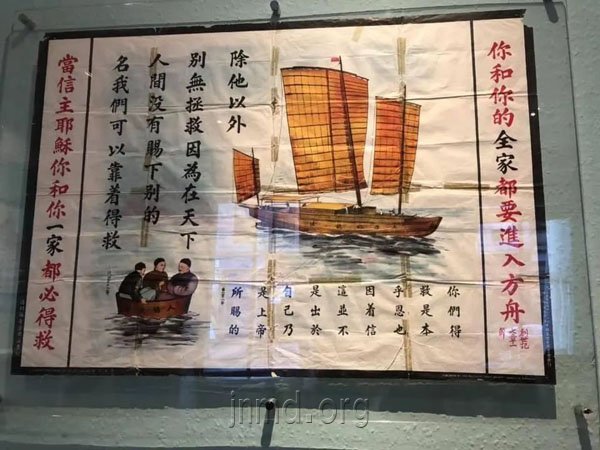 你和你的全家都要進入方舟
創世記
七章
一節
除他以外
別無拯救因為在天下
人間沒有賜下別的
名我們可以靠着得救
你們得
救是本
乎恩也
因着信
這並不
是出於
自己乃
是上帝
所賜的
當信主耶穌你和你一家都必得救
jnmd.org